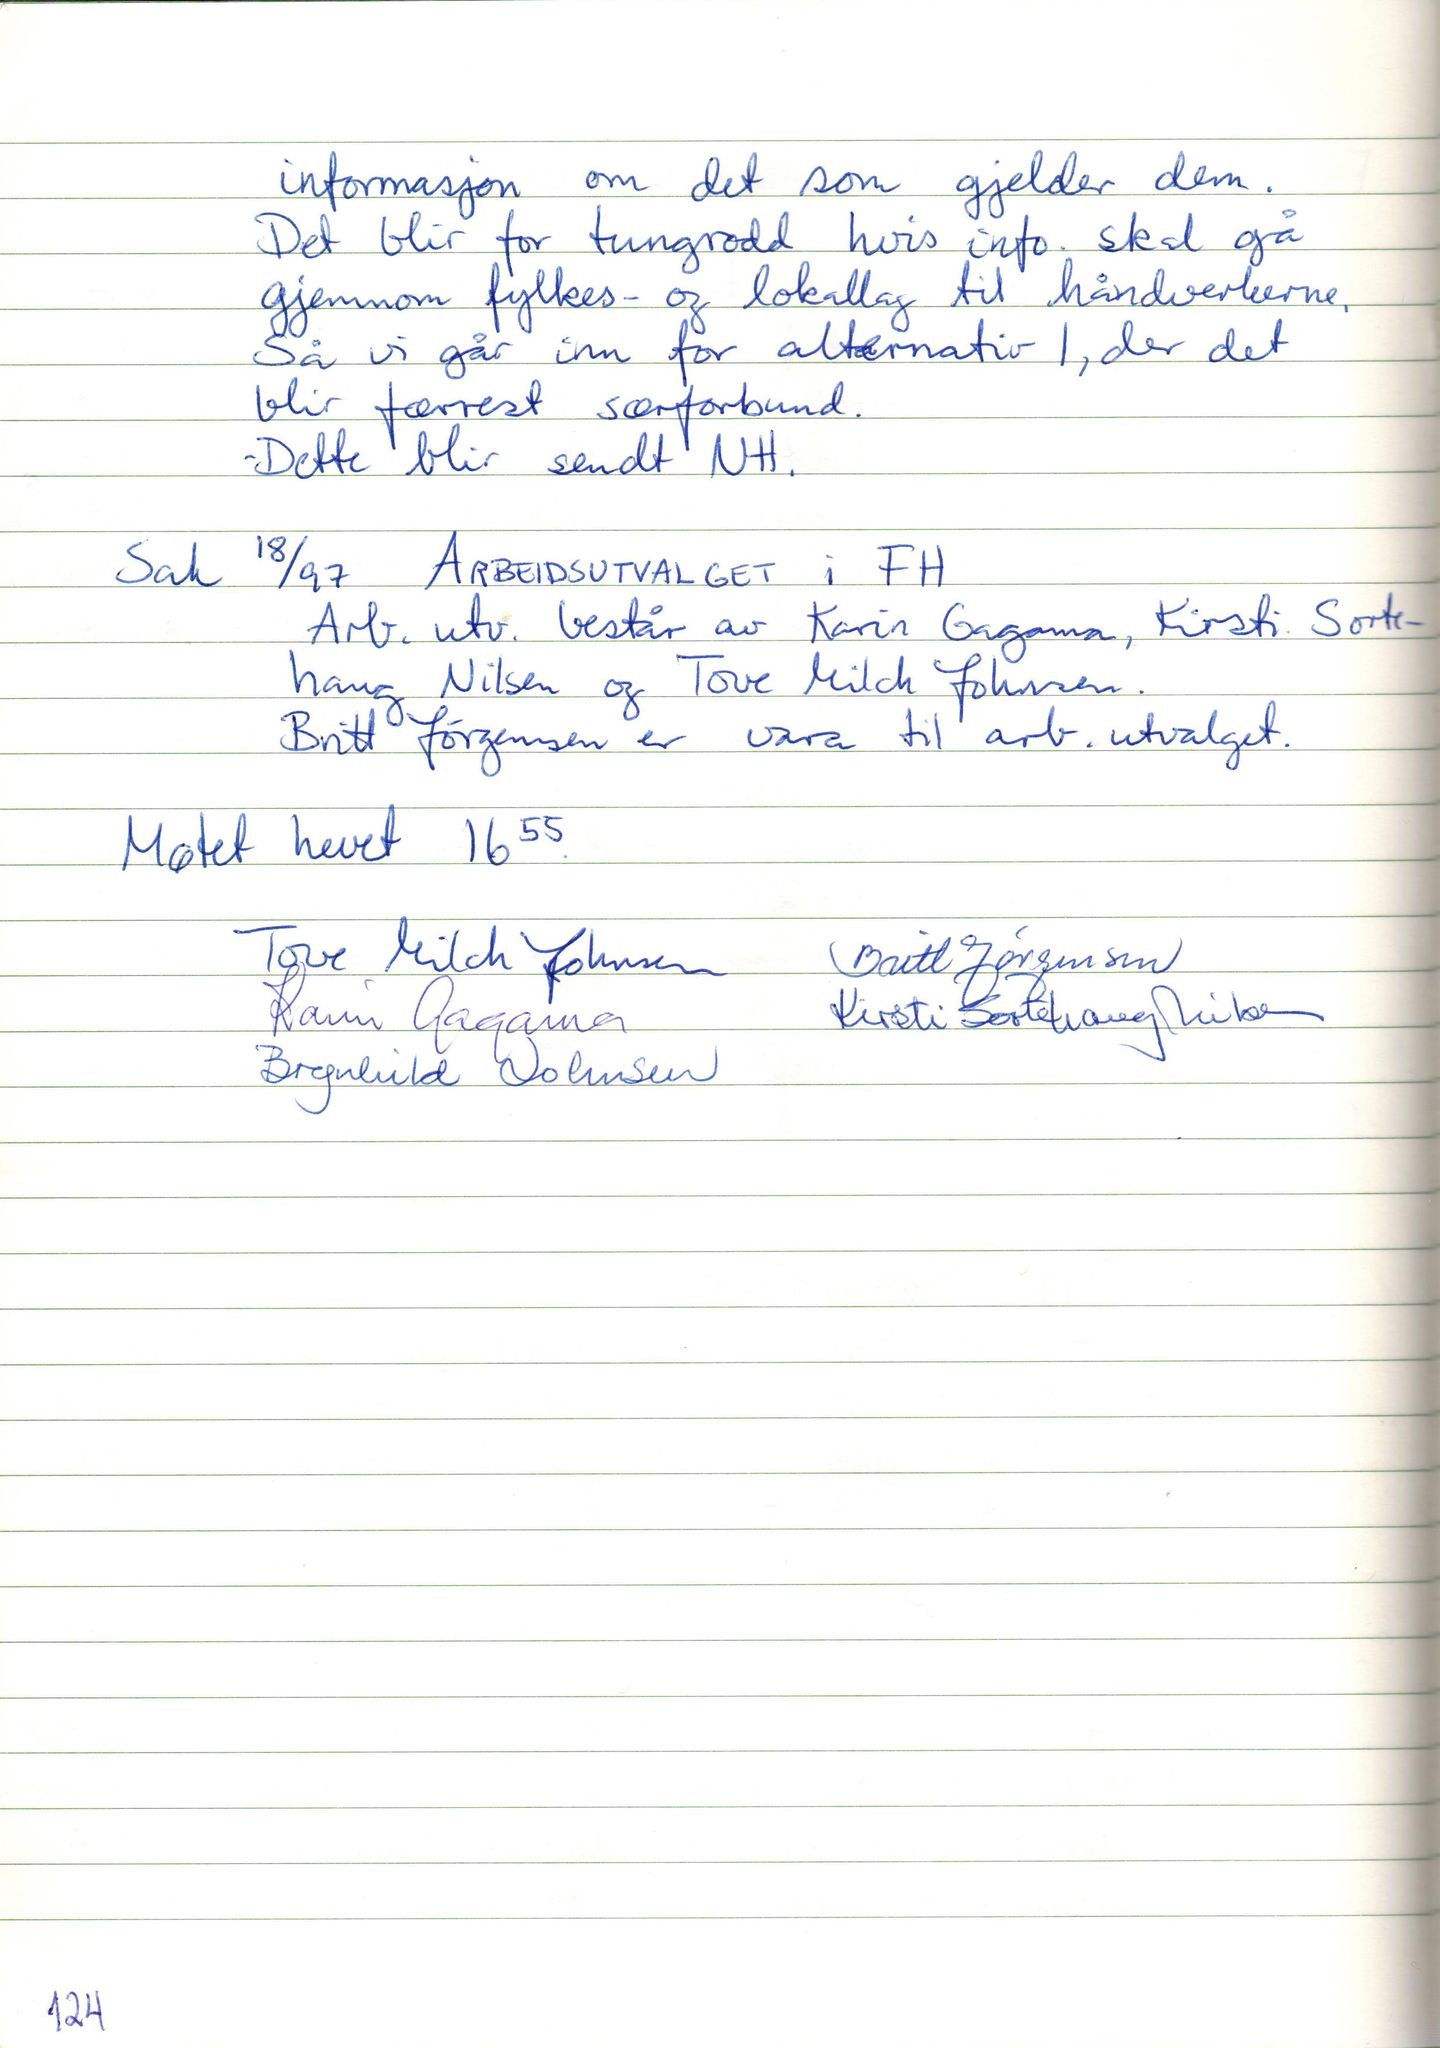 informasjon om det som gjelder dem.
Det blir for tungrodd hvis info. skal gå
gjennom fylkes- og lokallag til håndverkerne.
Så vi går inn for alternativ 1, der det
blir færrest særforbund.
-Dette blir sendt NH.
Sak 18/97 ARBEIDSUTVALGET i FH
Arb. utv. består av Karin Gagama, Kirsti Sorte-
haug Nilsen og Tove Milch Johnsen.
Britt Jörgensen er vara til arb. utvalget.
Møtet hevet 16 55
Tove Milch Johnsen Britt Jörgensen
Karin Gagama Kirsti Sortehaug Nilsen
Brynhild
124